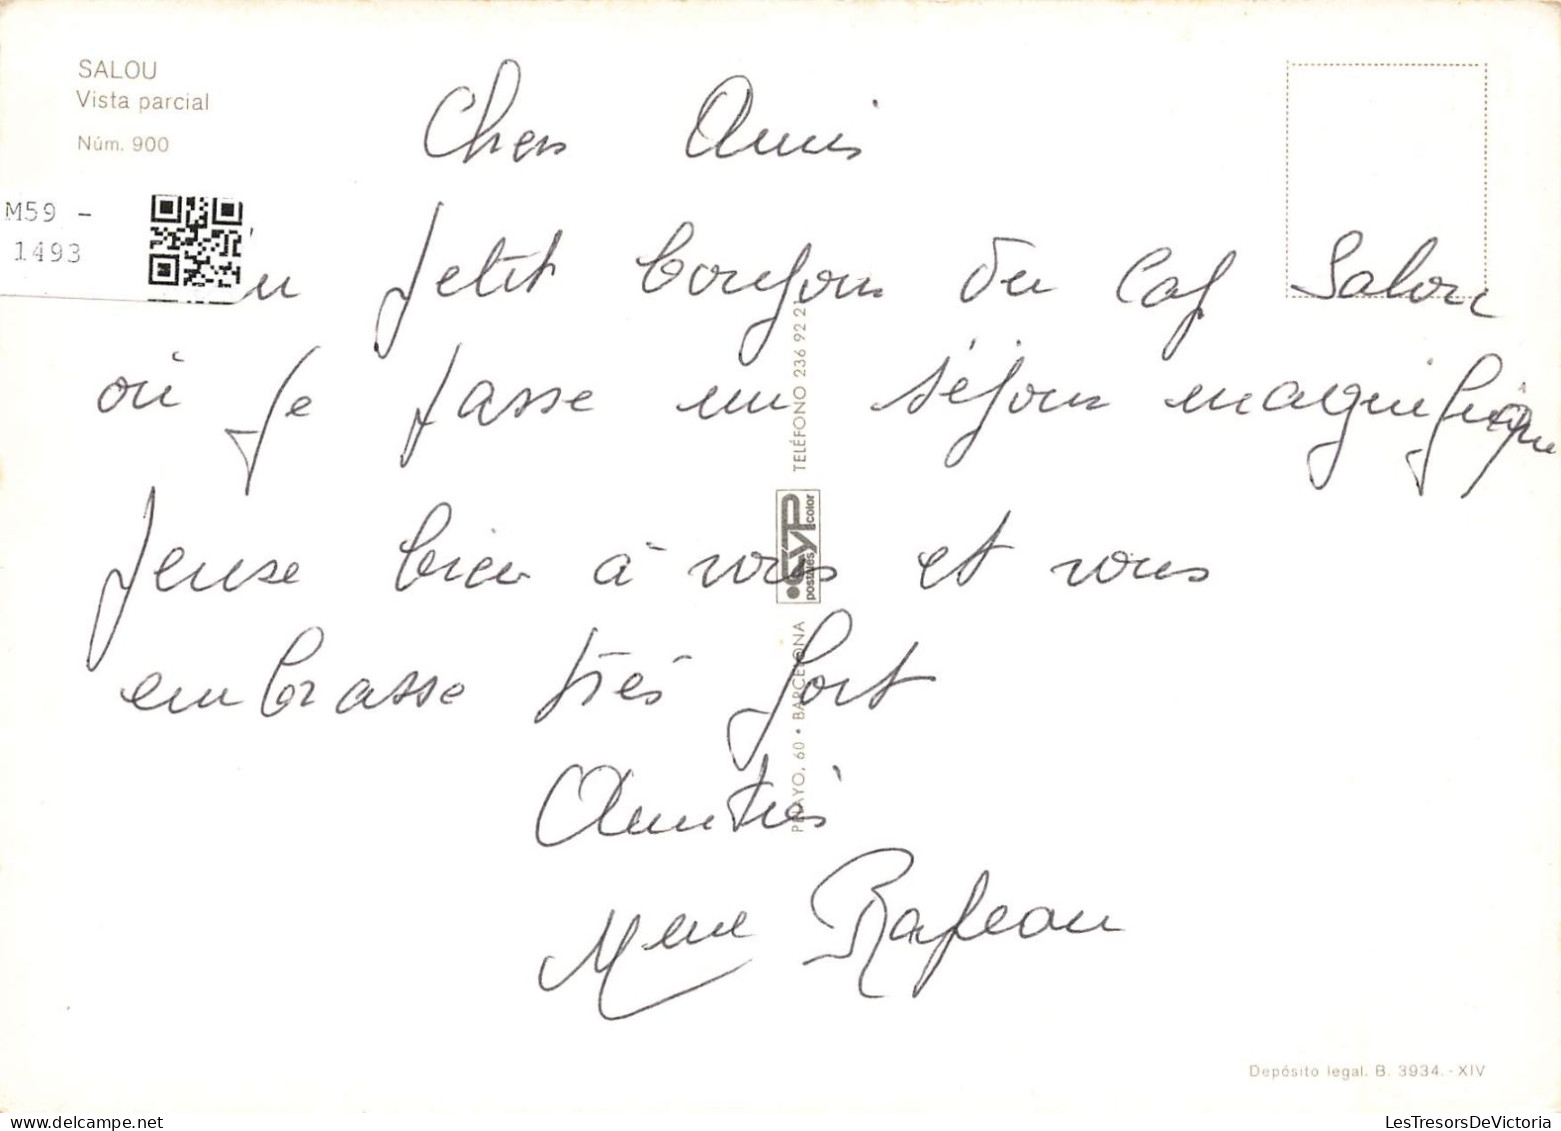 SALOU
Vista parcial
Núm. 900
M59 -
1493
Chers Amis
petit bonjour du Cap Salou
où je passe un séjour magnifique
pense bien à vous et vous
embrasse très fort
Amitiés
Mme
PELAYO, 60 • BARCELONA
CYP
postales color
TELÉFONO 236 92 2
Depósito legal. B. 3934.-XIV
LesTresorsDeVictoria